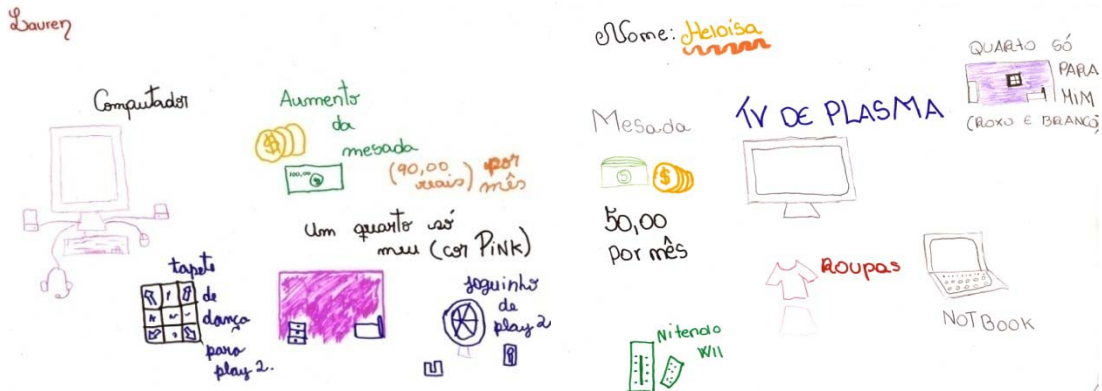 Lauren
Computador
Aumento
da
mesada
100,00
(90,00
reais) por
mês
Um quarto só
meu (cor PiNK)
tapete
de
dança
para
play 2.
joguinho
de
play 2
Nome: Heloisa
Mesada
50,00
Por mês
TV DE PLASMA
QUARTO SÓ
PARA
MIM
(ROXO E BRANCO)
Roupas
NOTBOOK
Nitendo
WII